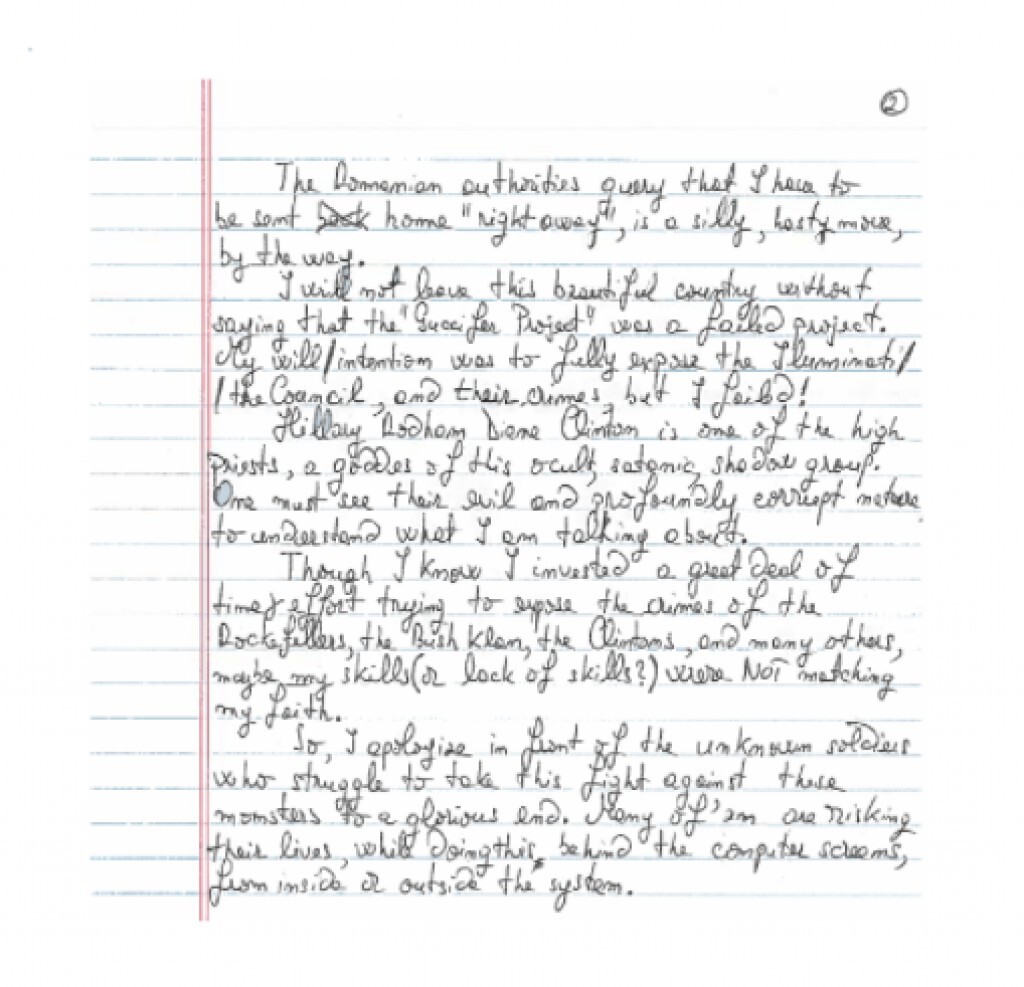 ②
The Romanian authorities query that I have to
be sent back home "right away", is a silly, hasty move,
by the way.
I will not leave this beautiful country without
saying that the "Guccifer Project" was a failed project.
My will/intention was to fully expose the Iluminati/
/the Council, and their crimes, but I failed!
Hillary Rodham Diane Clinton is one of the high
priests, a goddes of this ocult, satanic, shadow group.
One must see their evil and profoundly corrupt nature
to understand what I am talking about.
Though I know I invested a great deal of
time & effort trying to expose the crimes of the
Rockefellers, the Bush Klan, the Clintons, and many others,
maybe my skills (or lack of skills?) were NOT matching
my faith.
So, I apologize in front of the unknown soldiers
who struggle to take this fight against these
monsters to a glorious end. Many of 'em are risking
their lives, while doing this, behind the computer screens,
from inside or outside the system.